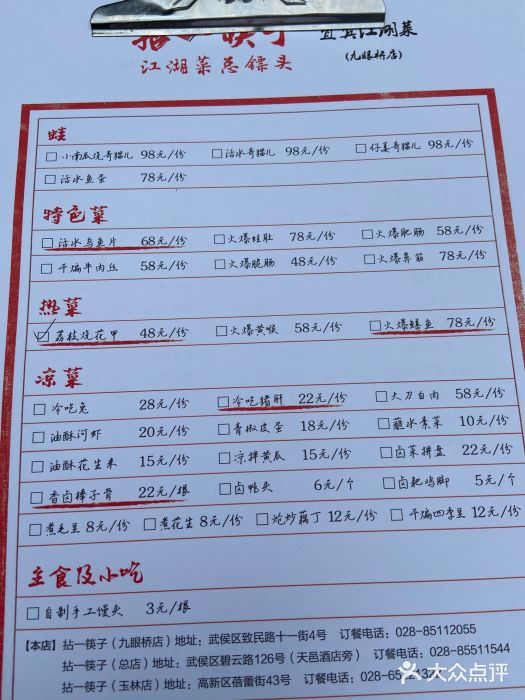 拈一筷子 宜宾江湖菜
江湖菜总镖头 (九眼桥店)
蛙
小南瓜烧哥猫儿 98元/份 活水哥猫儿 98元/份 仔姜哥猫儿 98元/份
活水鱼蛋 78元/份
特色菜
活水乌鱼片 68元/份 火爆蛙肚 78元/份 火爆肥肠 58元/份
干煸牛肉丝 58元/份 火爆脆肠 48元/份 火爆鼻筋 78元/份
热菜
荔枝烧花甲 48元/份 火爆黄喉 58元/份 火爆鳝鱼 78元/份
凉菜
冷吃兔 28元/份 冷吃猪肝 22元/份 大刀白肉 58元/份
油酥河虾 20元/份 青椒皮蛋 18元/份 蘸水素菜 10元/份
油酥花生米 15元/份 凉拌黄瓜 15元/份 卤菜拼盘 22元/份
香卤棒子骨 22元/根 卤鸭头 6元/个 卤耙鸡脚 5元/个
煮毛豆 8元/份 煮花生 8元/份 炝炒藕丁 12元/份 干煸四季豆 12元/份
主食及小吃
自制手工馒头 3元/根
【本店】拈一筷子（九眼桥店）地址：武侯区致民路十一街4号 订餐电话：028-85112055
拈一筷子（总店）地址：武侯区碧云路126号（天邑酒店旁） 订餐电话：028-85511544
拈一筷子（玉林店）地址：高新区蓓蕾街43号 订餐电话：028-
大众点评